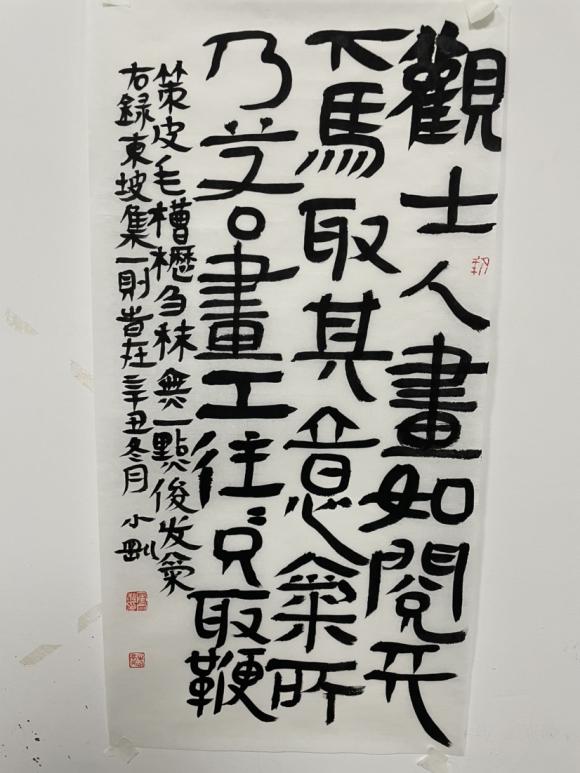 觀士人畫如閱天
下馬取其意氣所
乃若畫工往〻只取鞭
策皮毛槽櫪芻秣無一點俊发氣
右録東坡集一則旹在辛丑冬月 小剛